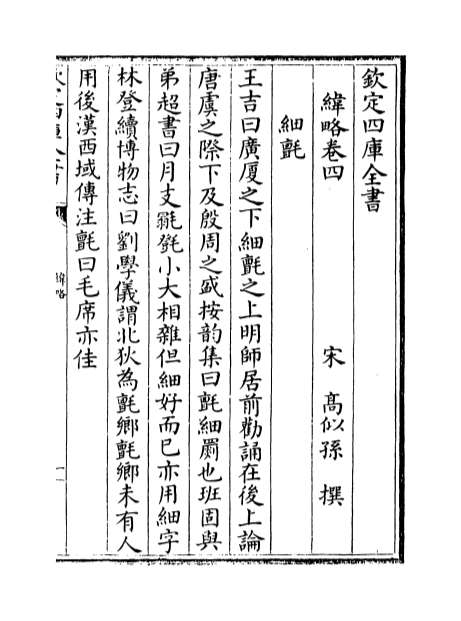 欽定四庫全書
緯略卷四　宋　高似孫　撰
細氈
王吉曰廣厦之下細氈之上明師居前勸誦在後上論
唐虞之際下及殷周之盛按韵集曰氈細罽也班固與
弟超書曰月支毾㲪小大相雜但細好而已亦用細字
林登續博物志曰劉學儀謂北狄為氈鄉氈鄉未有人
用後漢西域傳注氈曰毛席亦佳
緯略